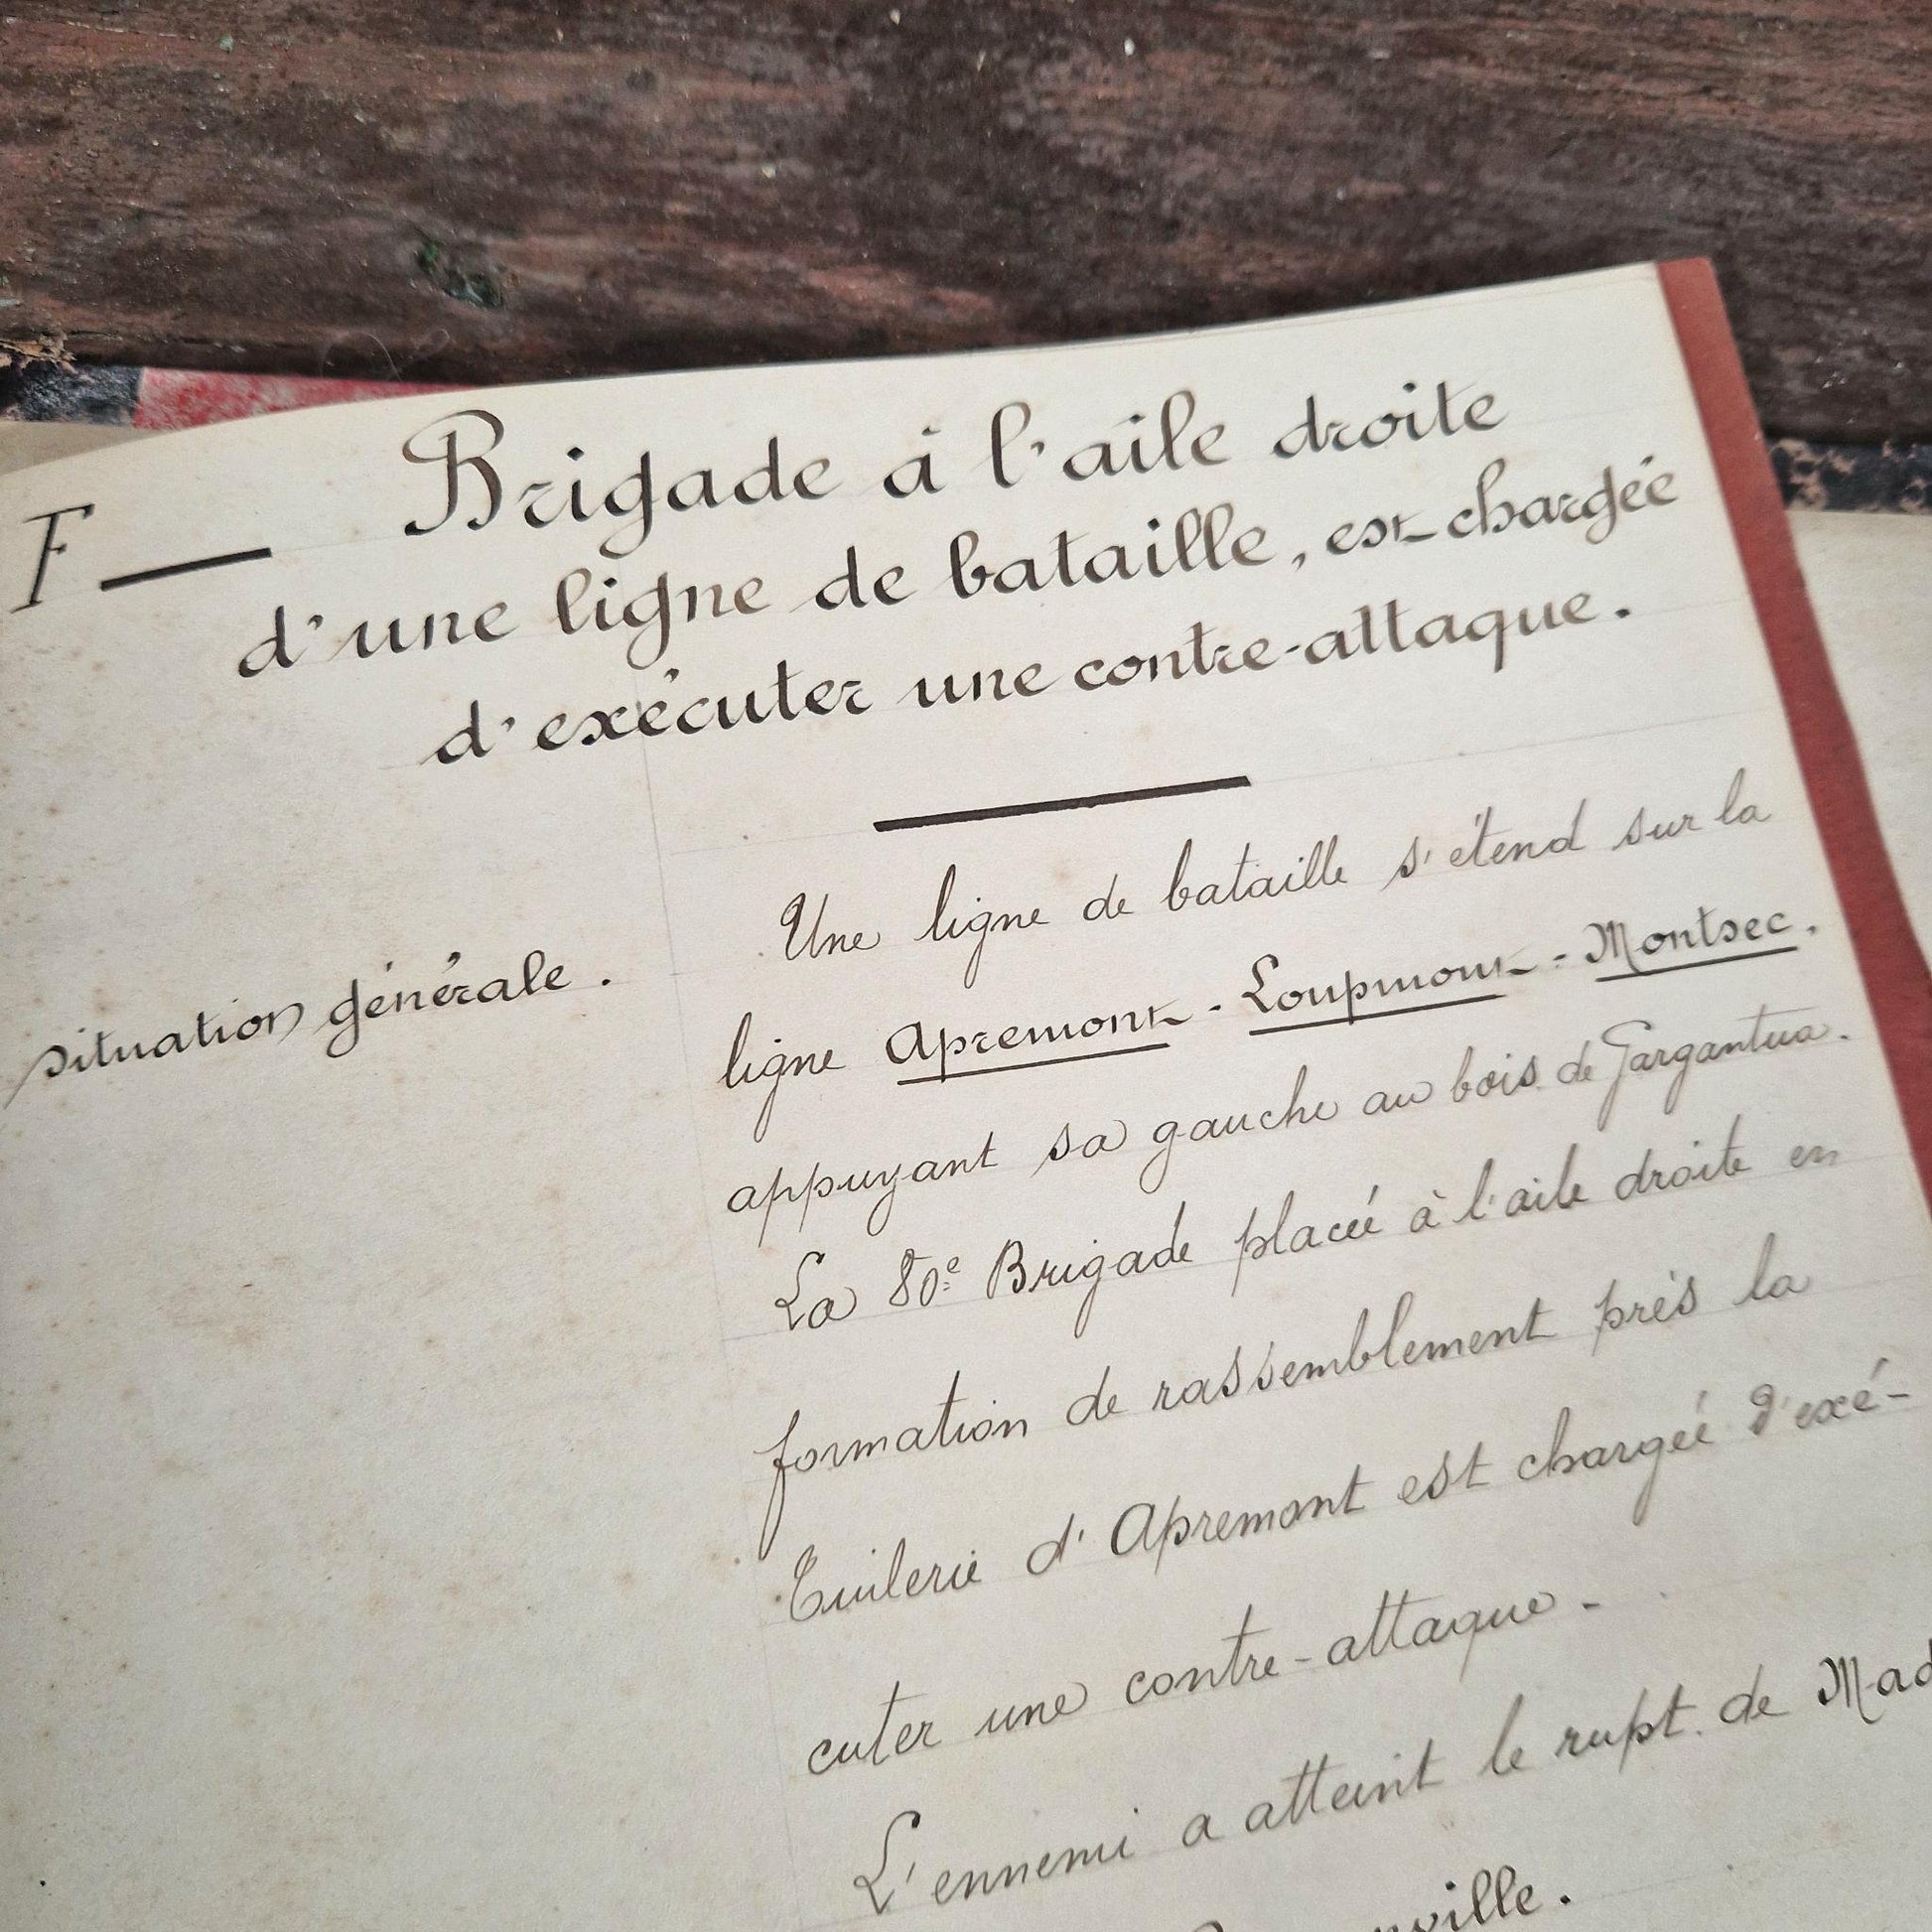 F — Brigade à l'aile droite
d'une ligne de bataille, est chargée
d'exécuter une contre-attaque.
Une ligne de bataille s'étend sur la
situation générale.
ligne Apremont - Loupmont - Montsec.
appuyant sa gauche au bois de Gargantua.
La 80e Brigade placée à l'aile droite en
formation de rassemblement près la
Tuilerie d'Apremont est chargée d'exé-
cuter une contre-attaque -
L'ennemi a atteint le rupt. de Mad